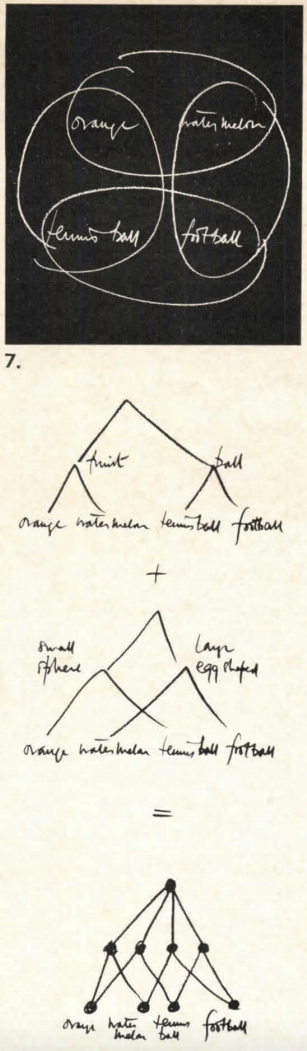 orange watermelon
tennis ball football
7.
fruit ball
orange watermelon tennis ball football
+
small large
sphere egg shaped
orange watermelon tennis ball football
=
orange water tennis football
melon ball